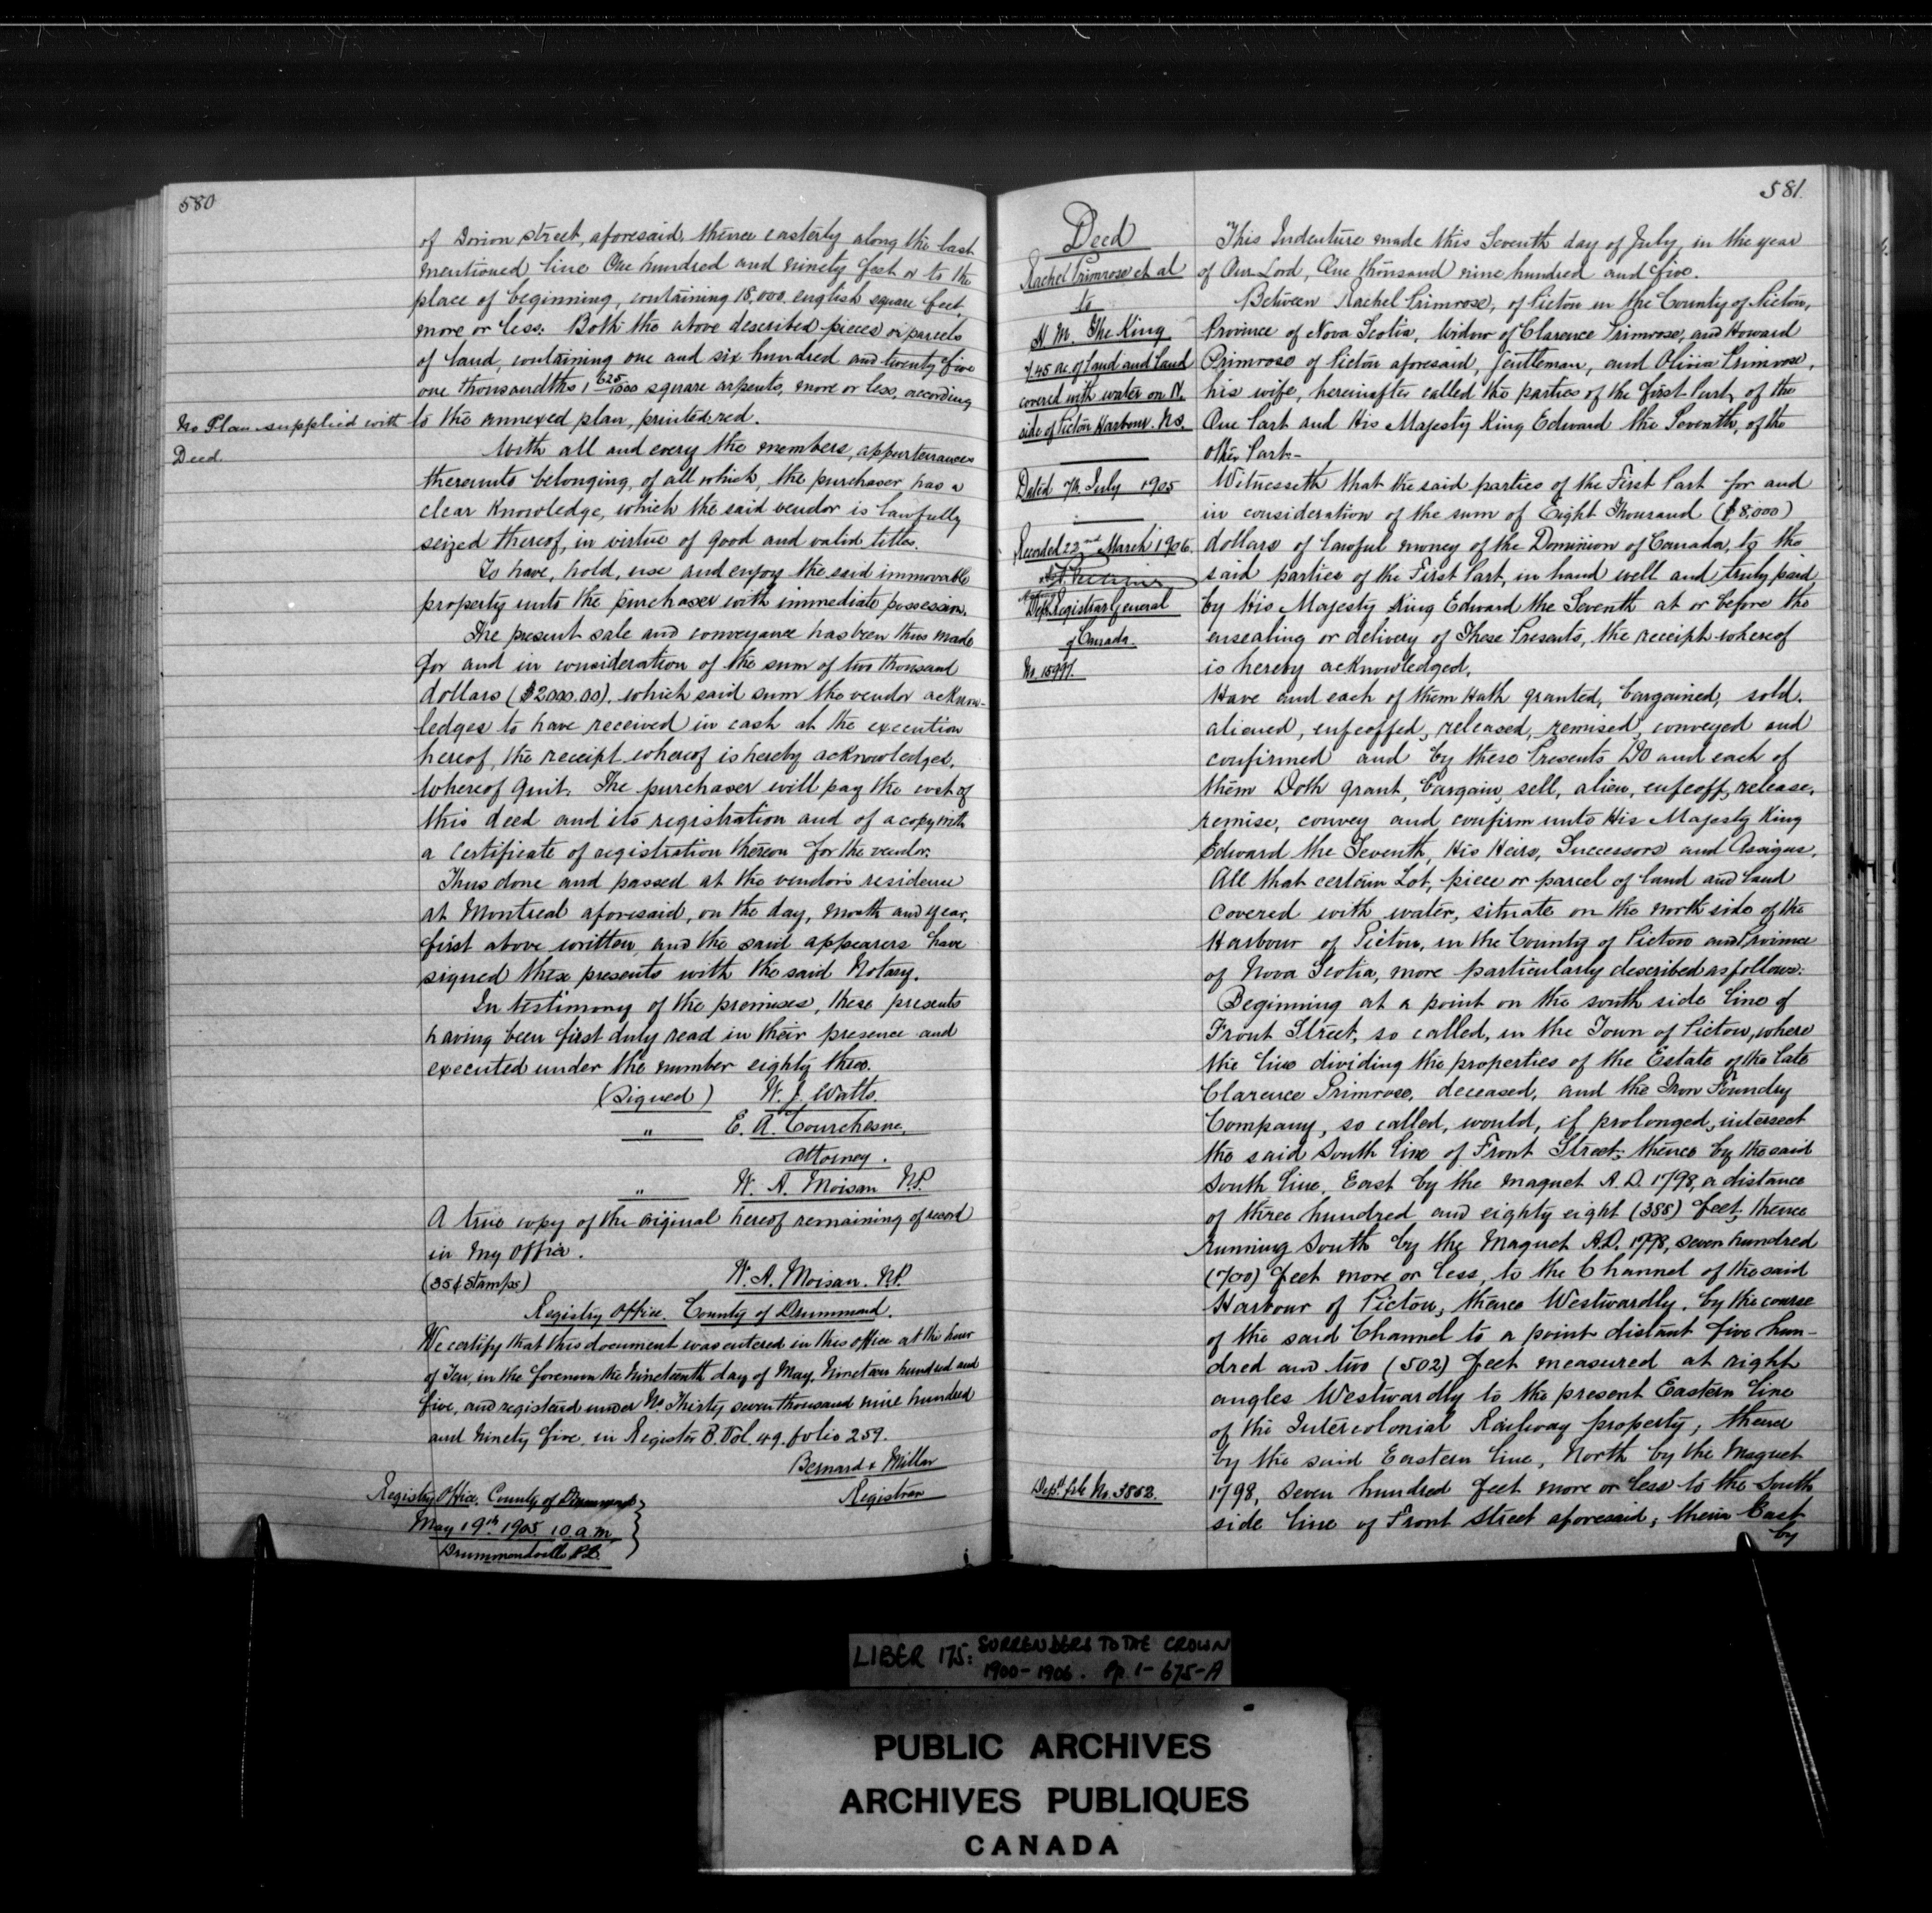 580
of Dorion street, aforesaid, thence easterly along the last
mentioned line One hundred and ninety feet or to the
place of beginning, containing 18,000 english square feet,
more or less. Both the above described pieces or parcels
of land, containing one and six hundred and twenty five
one thousandths 1 625/1000 square arpents, more or less, according
No Plan supplied with
Deed.
to the annexed plan, printed red.
With all and every the members, appurtenances
thereunto belonging, of all which, the purchaser has a
clear Knowledge, which the said vendor is lawfully
seized thereof, in virtue of good and valid titles.
To have, hold, use and enjoy the said immovable
property unto the purchaser with immediate possession.
The present sale and conveyance has been thus made
for and in consideration of the sum of two thousand
dollars ($2000.00). which said sum the vendor acknow-
ledges to have received in cash at the execution
hereof, the receipt whereof is hereby acknowledged,
whereof quit. The purchaser will pay the cost of
this deed and its registration and of a copy with
a certificate of registration thereon for the vendor.
Thus done and passed at the vendor's residence
at Montreal aforesaid, on the day, month and year,
first above written, and the said appearers have
signed these presents with the said Notary.
In testimony of the premises, these presents
having been first duly read in their presence and
executed under the number eighty three.
(Signed) W. J. Watts.
" E. A. Courchesne.
Attorney.
" W. A. Moisan N.P.
A true copy of the original hereof remaining of record
in my office.
(35¢ Stamps) W. A. Moisan. N.P.
Registry Office. County of Drummond.
We certify that this document was entered in this office at the hour
of Ten, in the forenoon the Nineteenth day of May, Nineteen hundred and
five, and registered under No Thirty seven thousand nine hundred
and Ninety five in Register B. Vol. 49. folio 259.
Bernard & Millar
Registrar
Registry Office. County of Drummond
May 19th 1905. 10 a.m.
Drummondville P.Q.
581.
Deed
Rachel Primrose et al
to
H. M. The King
7.45 ac. of land and land
covered with water on N.
side of Pictou Harbour. N.S.
Dated 7th July 1905
Recorded 22nd March 1906.
Dep. Registrar General
of Canada.
No. 15997.
Dept. file No. 3862.
This Indenture made this Seventh day of July, in the year
of Our Lord, One thousand nine hundred and five.
Between Rachel Primrose, of Pictou in the County of Pictou,
Province of Nova Scotia, Widow of Clarence Primrose, and Howard
Primrose of Pictou aforesaid, Gentleman, and Olivia Primrose,
his wife, hereinafter called the parties of the first Part, of the
One Part and His Majesty King Edward the Seventh, of the
other Part.-
Witnesseth that the said parties of the First Part for and
in consideration of the sum of Eight Thousand ($8,000)
dollars of lawful money of the Dominion of Canada, to the
said parties of the First Part, in hand well and truly paid
by His Majesty King Edward the Seventh at or before the
ensealing or delivery of These Presents, the receipt whereof
is hereby acknowledged,
Have and each of them Hath granted, bargained, sold,
aliened, enfeoffed, released, remised, conveyed and
confirmed and by these Presents Do and each of
them Doth grant, bargain, sell, alien, enfeoff, release,
remise, convey and confirm unto His Majesty King
Edward the Seventh, His Heirs, Successors and Assigns,
All that certain Lot, piece or parcel of land and land
covered with water, situate on the north side of the
Harbour of Pictou, in the County of Pictou and Province
of Nova Scotia, more particularly described as follows:
Beginning at a point on the south side line of
Front Street, so called, in the Town of Pictou, where
the line dividing the properties of the Estate of the late
Clarence Primrose, deceased, and the Iron Foundry
Company, so called, would, if prolonged, intersect
the said South line of Front Street; thence by the said
South line, East by the magnet A.D. 1798, a distance
of three hundred and eighty eight (388) feet; thence
running South by the Magnet A.D. 1798, seven hundred
(700) feet more or less, to the Channel of the said
Harbour of Pictou; thence Westwardly, by the course
of the said Channel to a point distant five hun-
dred and two (502) feet measured at right
angles Westwardly to the present Eastern line
of the Intercolonial Railway property; thence
by the said Eastern line, North by the Magnet
1798, seven hundred feet more or less to the South
side line of Front Street aforesaid; thence East
by
LIBER 175: SURRENDERS TO THE CROWN
1900-1906. Pp. 1-675-A
PUBLIC ARCHIVES
ARCHIVES PUBLIQUES
CANADA